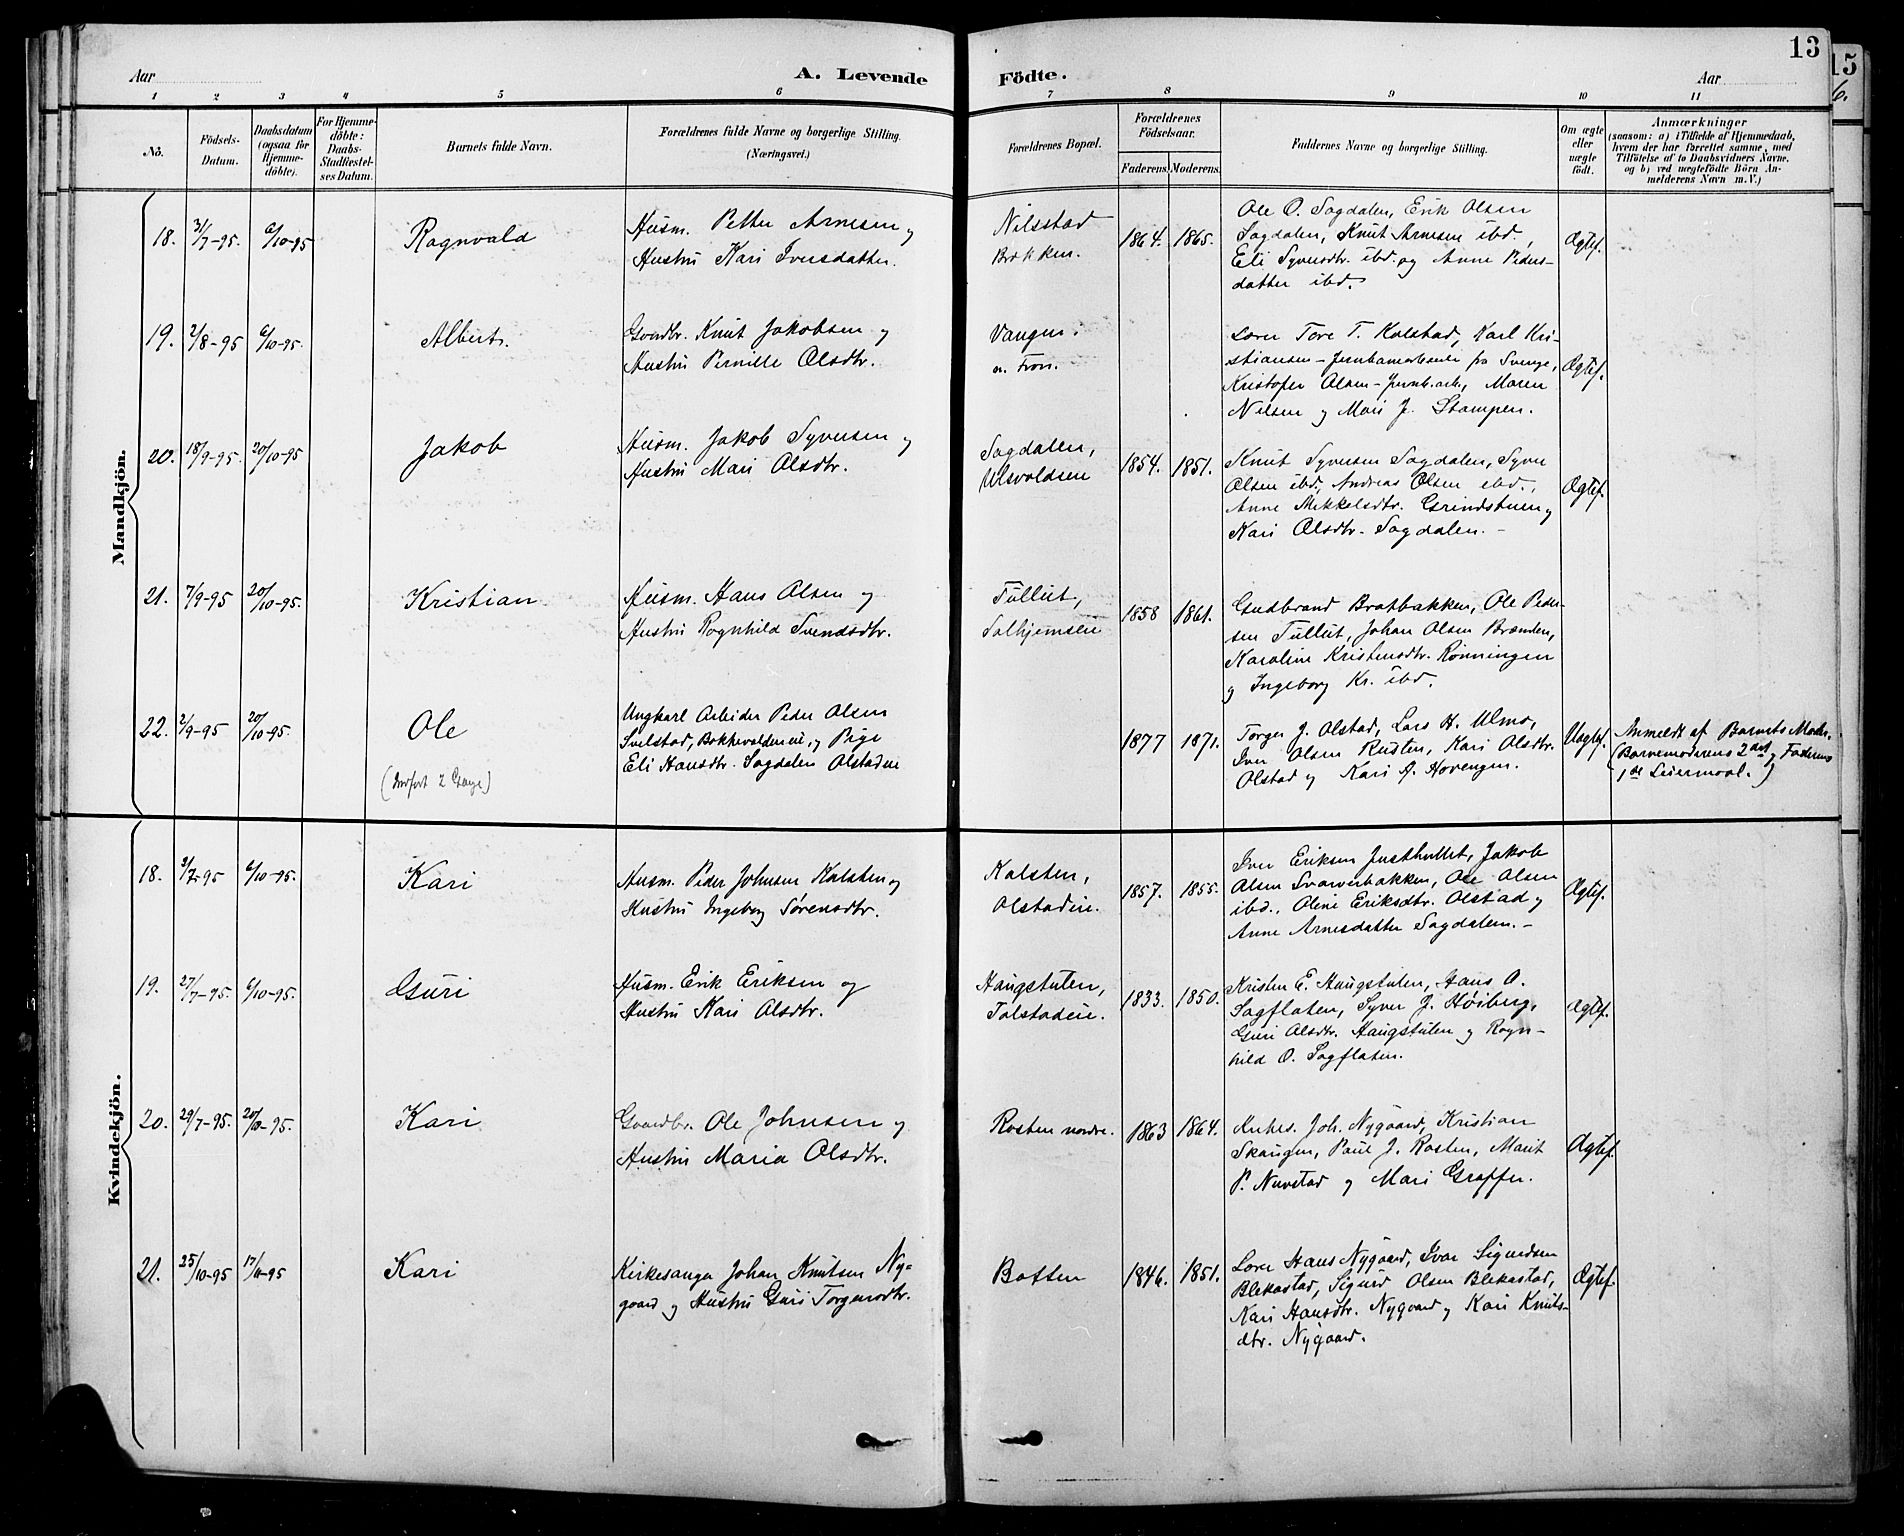 13
15
6.
Aar
A. Levende Födte.
Aar
1 2 3 4 5 6 7 8 9 10 11
No.
Födsels-Datum.
Daabsdatum (ogsaa for Hjemme-döbte).
For Hjemme-döbte: Daabs-Stadfæstel-ses Datum.
Barnets fulde Navn.
Forældrenes fulde Navne og borgerlige Stilling.
(Næringsvei.)
Forældrenes Bopæl.
Forældrenes Födselsaar.
Faderens. Moderens.
Faddernes Navne og borgerlige Stilling.
Om ægte eller uægte födt.
Anmærkninger
(saasom: a) i Tilfælde af Hjemmedaab,
hvem der har forrettet samme, med
Tilföielse af to Daabsvidners Navne,
og b) ved uægtefödte Börn An-
melderens Navn m. V.)
Mandkjön.
18. 31/7-95. 6/10-95 Ragnvald
Husm. Petter Arnesen og
Hustru Kari Iversdatter.
Nilsstad
Bakken.
1864. 1865.
Ole O. Sagdalen, Erik Olsen
Sagdalen, Knut Arnesen ibd.,
Eli Syversdtr. ibd. og Anne Peders-
datter ibd.
Ægtef.
19. 2/8-95 6/10-95. Albert.
Gaardbr. Knut Jakobsen og
Hustru Pernille Olsdtr.
Vangen.
n. Fron.
Lærer Tore T. Kolstad, Karl Kri-
stiansen - Jernbanearbeider fra Sverige,
Kristofer Olsen - Jernb.arb., Maren
Nilsen og Mari J. Stampen.
Ægtef.
20. 18/9-95. 20/10-95 Jakob
Husm. Jakob Syversen og
Hustru Mari Olsdtr.
Sagdalen,
Ulsvoldseie
1854. 1851.
Knut Syversen Sagdalen, Syver
Olsen ibd., Andreas Olsen ibd.,
Anne Mikkelsdtr. Grindstuen og
Kari Olsdtr. Sagdalen. -
Ægtef.
21. 7/9-95 20/10-95. Kristian
Husm. Hans Olsen og
Hustru Ragnhild Svendsdtr.
Tullut,
Solhjemseie
1858 1861.
Gudbrand Bratbakken, Ole Peder-
sen Tullut, Johan Olsen Brænden,
Karoline Kristensdtr. Rønningen
og Ingeborg Kr. ibd.
22. 2/9-95 20/10-95. Ole
(Indført 2 Gange)
Ungkarl Arbeider Peder Olsen
Svelstad, Bakkevoldeneie, og Pige
Eli Hansdtr. Sagdalen Olstadeie
1877 1871.
Torger J. Olstad, Lars H. Ulmo,
Iver Olsen Rusten, Kari Olsdtr.
Olstad og Kari A. Hovengen.
Uægtef.
Anmeldt af Barnets Moder.
(Barnemoderens 2det og Faderens
1ste Leiermaal.)
Kvindekjön.
18. 3/7-95 6/10-95. Kari
Husm. Peder Johnsen Kalsten og
Hustru Ingeborg Sørensdtr.
Kalsten,
Olstadeie.
1857. 1855.
Iver Eriksen Justhullet, Jakob
Olsen Svarverbakken, Ole Olsen
ibd., Oline Eriksdtr. Olstad og
Anne Arnesdatter Sagdalen. -
Ægtef.
19. 27/7-95. 6/10-95. Guri
Husm. Erik Eriksen og
Hustru Kari Olsdtr.
Haugstulen,
Tolstadeie.
1833. 1850.
Kristen E. Haugstulen, Hans O.
Sagflaten, Syver J. Høiberg,
Guri Olsdtr. Haugstulen og Ragn-
hild O. Sagflaten.
Ægtef.
20. 29/7-95. 20/10-95. Kari
Gaardbr. Ole Johnsen og
Hustru Maria Olsdtr.
Rosten nordre.
1863 1864.
Enkes. Joh. Nygaard, Kristian
Skaugen, Paul J. Rosten, Marit
P. Nuvstad og Mari Graffer.
Ægtef.
21. 25/10-95 17/11-95 Kari
Kirkesanger Johan Knutsen Ny=
gaard og Hustru Guri Torgersdtr.
Botten
1846. 1851.
Lærer Hans Nygaard, Ivar Sigurdsen
Blekastad, Sigurd Olsen Blekastad,
Kari Hansdtr. Nygaard og Kari Knuts-
dtr. Nygaard.
Ægtef.